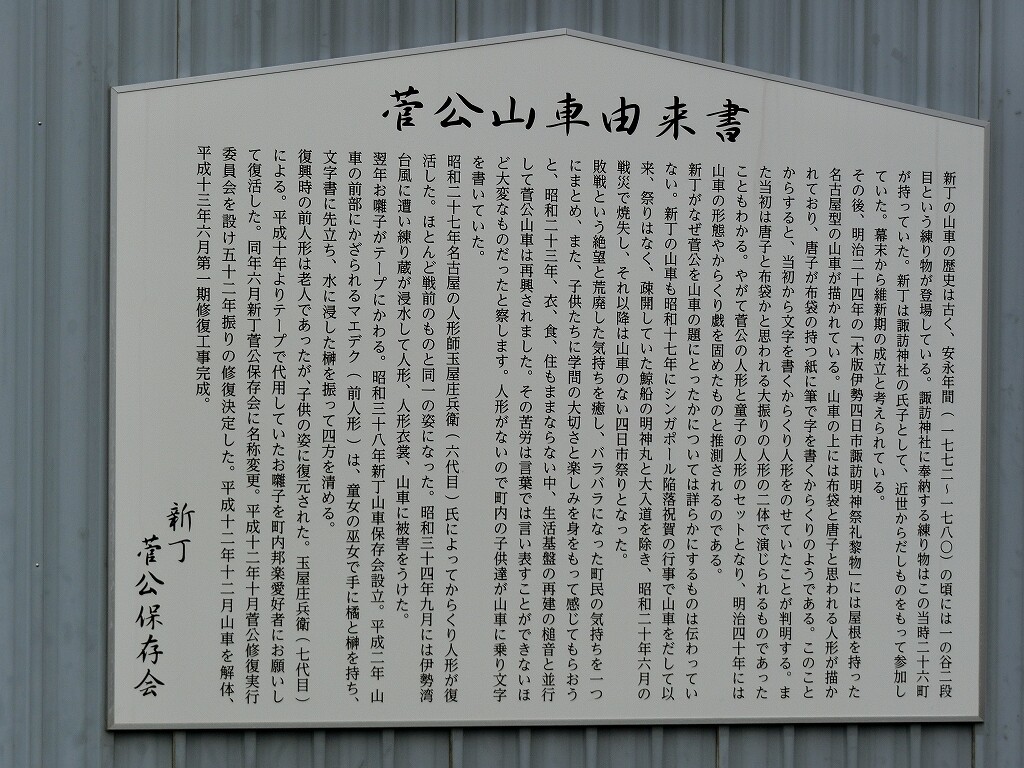 菅公山車由来書
新丁の山車の歴史は古く、安永年間（一七七二～一七八〇）の頃には一の谷二段
目という練り物が登場している。諏訪神社に奉納する練り物はこの当時二十六町
が持っていた。新丁は諏訪神社の氏子として、近世からだしものをもって参加し
ていた。幕末から維新期の成立と考えられている。
その後、明治二十四年の「木版伊勢四日市諏訪明神祭礼黎物」には屋根を持った
名古屋型の山車が描かれている。山車の上には布袋と唐子と思われる人形が描か
れており、唐子が布袋の持つ紙に筆で字を書くからくりのようである。このこと
からすると、当初から文字を書くからくり人形をのせていたことが判明する。ま
た当初は唐子と布袋かと思われる大振りの人形の二体で演じられるものであった
こともわかる。やがて菅公の人形と童子の人形のセットとなり、明治四十年には
山車の形態やからくり戯を固めたものと推測されるのである。
新丁がなぜ菅公を山車の題にとったかについては詳らかにするものは伝わってい
ない。新丁の山車も昭和十七年にシンガポール陥落祝賀の行事で山車をだして以
来、祭りはなく、疎開していた鯨船の明神丸と大入道を除き、昭和二十年六月の
戦災で焼失し、それ以降は山車のない四日市祭りとなった。
敗戦という絶望と荒廃した気持ちを癒し、バラバラになった町民の気持ちを一つ
にまとめ、また、子供たちに学問の大切さと楽しみを身をもって感じてもらおう
と、昭和二十三年、衣、食、住もままならない中、生活基盤の再建の槌音と並行
して菅公山車は再興されました。その苦労は言葉では言い表すことができないほ
ど大変なものだったと察します。人形がないので町内の子供達が山車に乗り文字
を書いていた。
昭和二十七年名古屋の人形師玉屋庄兵衛（六代目）氏によってからくり人形が復
活した。ほとんど戦前のものと同一の姿になった。昭和三十四年九月には伊勢湾
台風に遭い練り蔵が浸水して人形、人形衣裳、山車に被害をうけた。
翌年お囃子がテープにかわる。昭和三十八年新丁山車保存会設立。平成二年 山
車の前部にかざられるマエデク（前人形）は、童女の巫女で手に橘と榊を持ち、
文字書に先立ち、水に浸した榊を振って四方を清める。
復興時の前人形は老人であったが、子供の姿に復元された。玉屋庄兵衛（七代目）
による。平成十年よりテープで代用していたお囃子を町内邦楽愛好者にお願いし
て復活した。同年六月新丁菅公保存会に名称変更。平成十二年十月菅公修復実行
委員会を設け五十二年振りの修復決定した。平成十二年十二月山車を解体、
平成十三年六月第一期修復工事完成。
新丁
菅公保存会